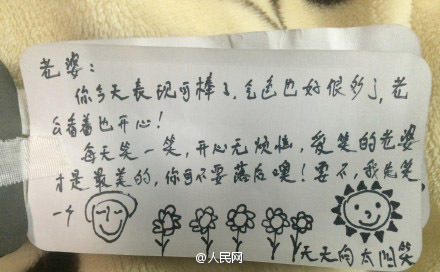 老婆：
你今天表现可棒了，气色也好很多了，老
公看着也开心！
每天笑一笑，开心无烦恼，爱笑的老婆
才是最美的，你可不要落后噢！要不，我先笑
一个
天天向太阳笑
@人民网